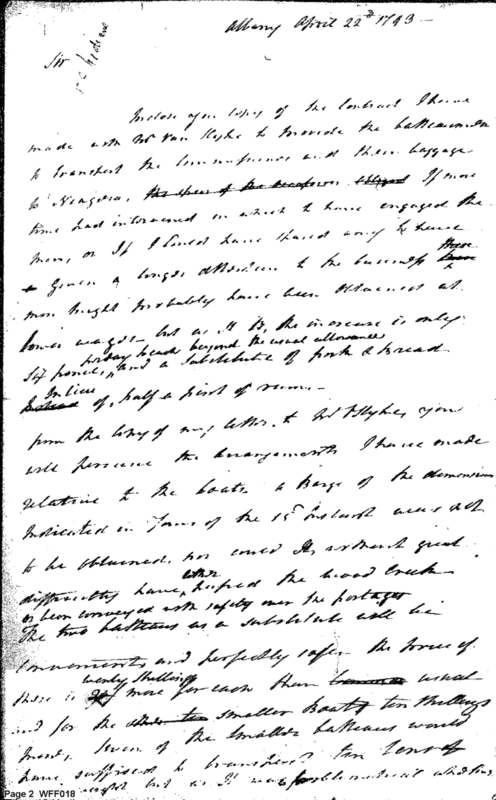 Albany April 22d 1793 –
Sir
Inclose you copy of the Contract I have
made with Mr Van Slyke to Provide the batteaumen
to transport the Commissioners and their baggage
to Niagara, If more
time had intervened in which to have engaged the
men, or If I could have shared any to have
given a longer attention to the business these
men might Probably have been obtained at
lower wages – but as It is, the increase is only
six pence per day to each beyond the usual allowance and a substitute of pork & bread
In lieu of, half a pint of rum –
from the Copy of my letter, to Mr V Slyke, you
will perceive the arrangements I have made
relative to the boats a Barge of the dimensions
Indicated in Yours of the 15th Instant was not
to be obtained, nor could It, without great
difficulty have, either passed the wood Creek
or been conveyed with safety over the portages
The two batteaus as a substitute will be
convenient and perfectly safe the price of
these is twenty shillings more for each than usual
and for the smaller Boats ten shillings
more, seven of the smaller batteaus would
have sufficed to transport ten tons of
weight but as It was problematical whether
Page 2 WFF018